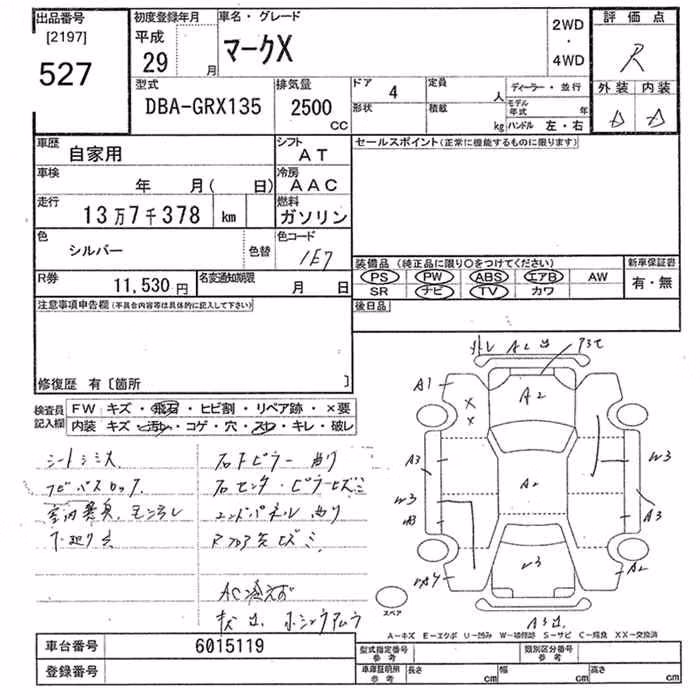 出品番号
[2197]
527
初度登録年月
平成
29 月
車名・グレード
マークX
2WD
・
4WD
評価点
R
外装 内装
D D
型式
DBA-GRX135
排気量
2500
CC
ドア
4
形状
定員
人
積載
kg
ディーラー・並行
モデル年式 年
ハンドル 左・右
車歴
自家用
シフト
AT
車検
年 月( 日)
冷房
AAC
走行
13万7千378 km
燃料
ガソリン
色
シルバー
色替
色コード
1E7
R券
11,530 円
名変通知期限
月 日
セールスポイント(正常に機能するものに限ります)
装備品 (純正品に限り○をつけてください)
PS PW ABS エアB AW
SR ナビ TV カワ
新車保証書
有・無
後日品
注意事項申告欄(不具合内容等は具体的に記入して下さい)
修復歴 有〔箇所 〕
検査員記入欄
FW キズ・飛石・ヒビ割・リペア跡・×要
内装 キズ・汚れ・コゲ・穴・スレ・キレ・破レ
シートシミス
室内
下廻りサ
右Fピラー曲り
右センターピラーヒズミ
エンドパネル曲り
RフロアヒズミI
AC冷えず
キズ凹
外レ A2 凹
A1
A2
A3
W3
A2
W3
A3
W3
A3
W3
A2
A3凹
スペア
A-キズ E-エクボ U-凹み W-補修跡 S-サビ C-腐食 XX-交換済
車台番号
6015119
登録番号
型式指定番号
参考
類別区分番号
参考
車庫証明用
参考
長さ cm
幅 cm
高さ cm